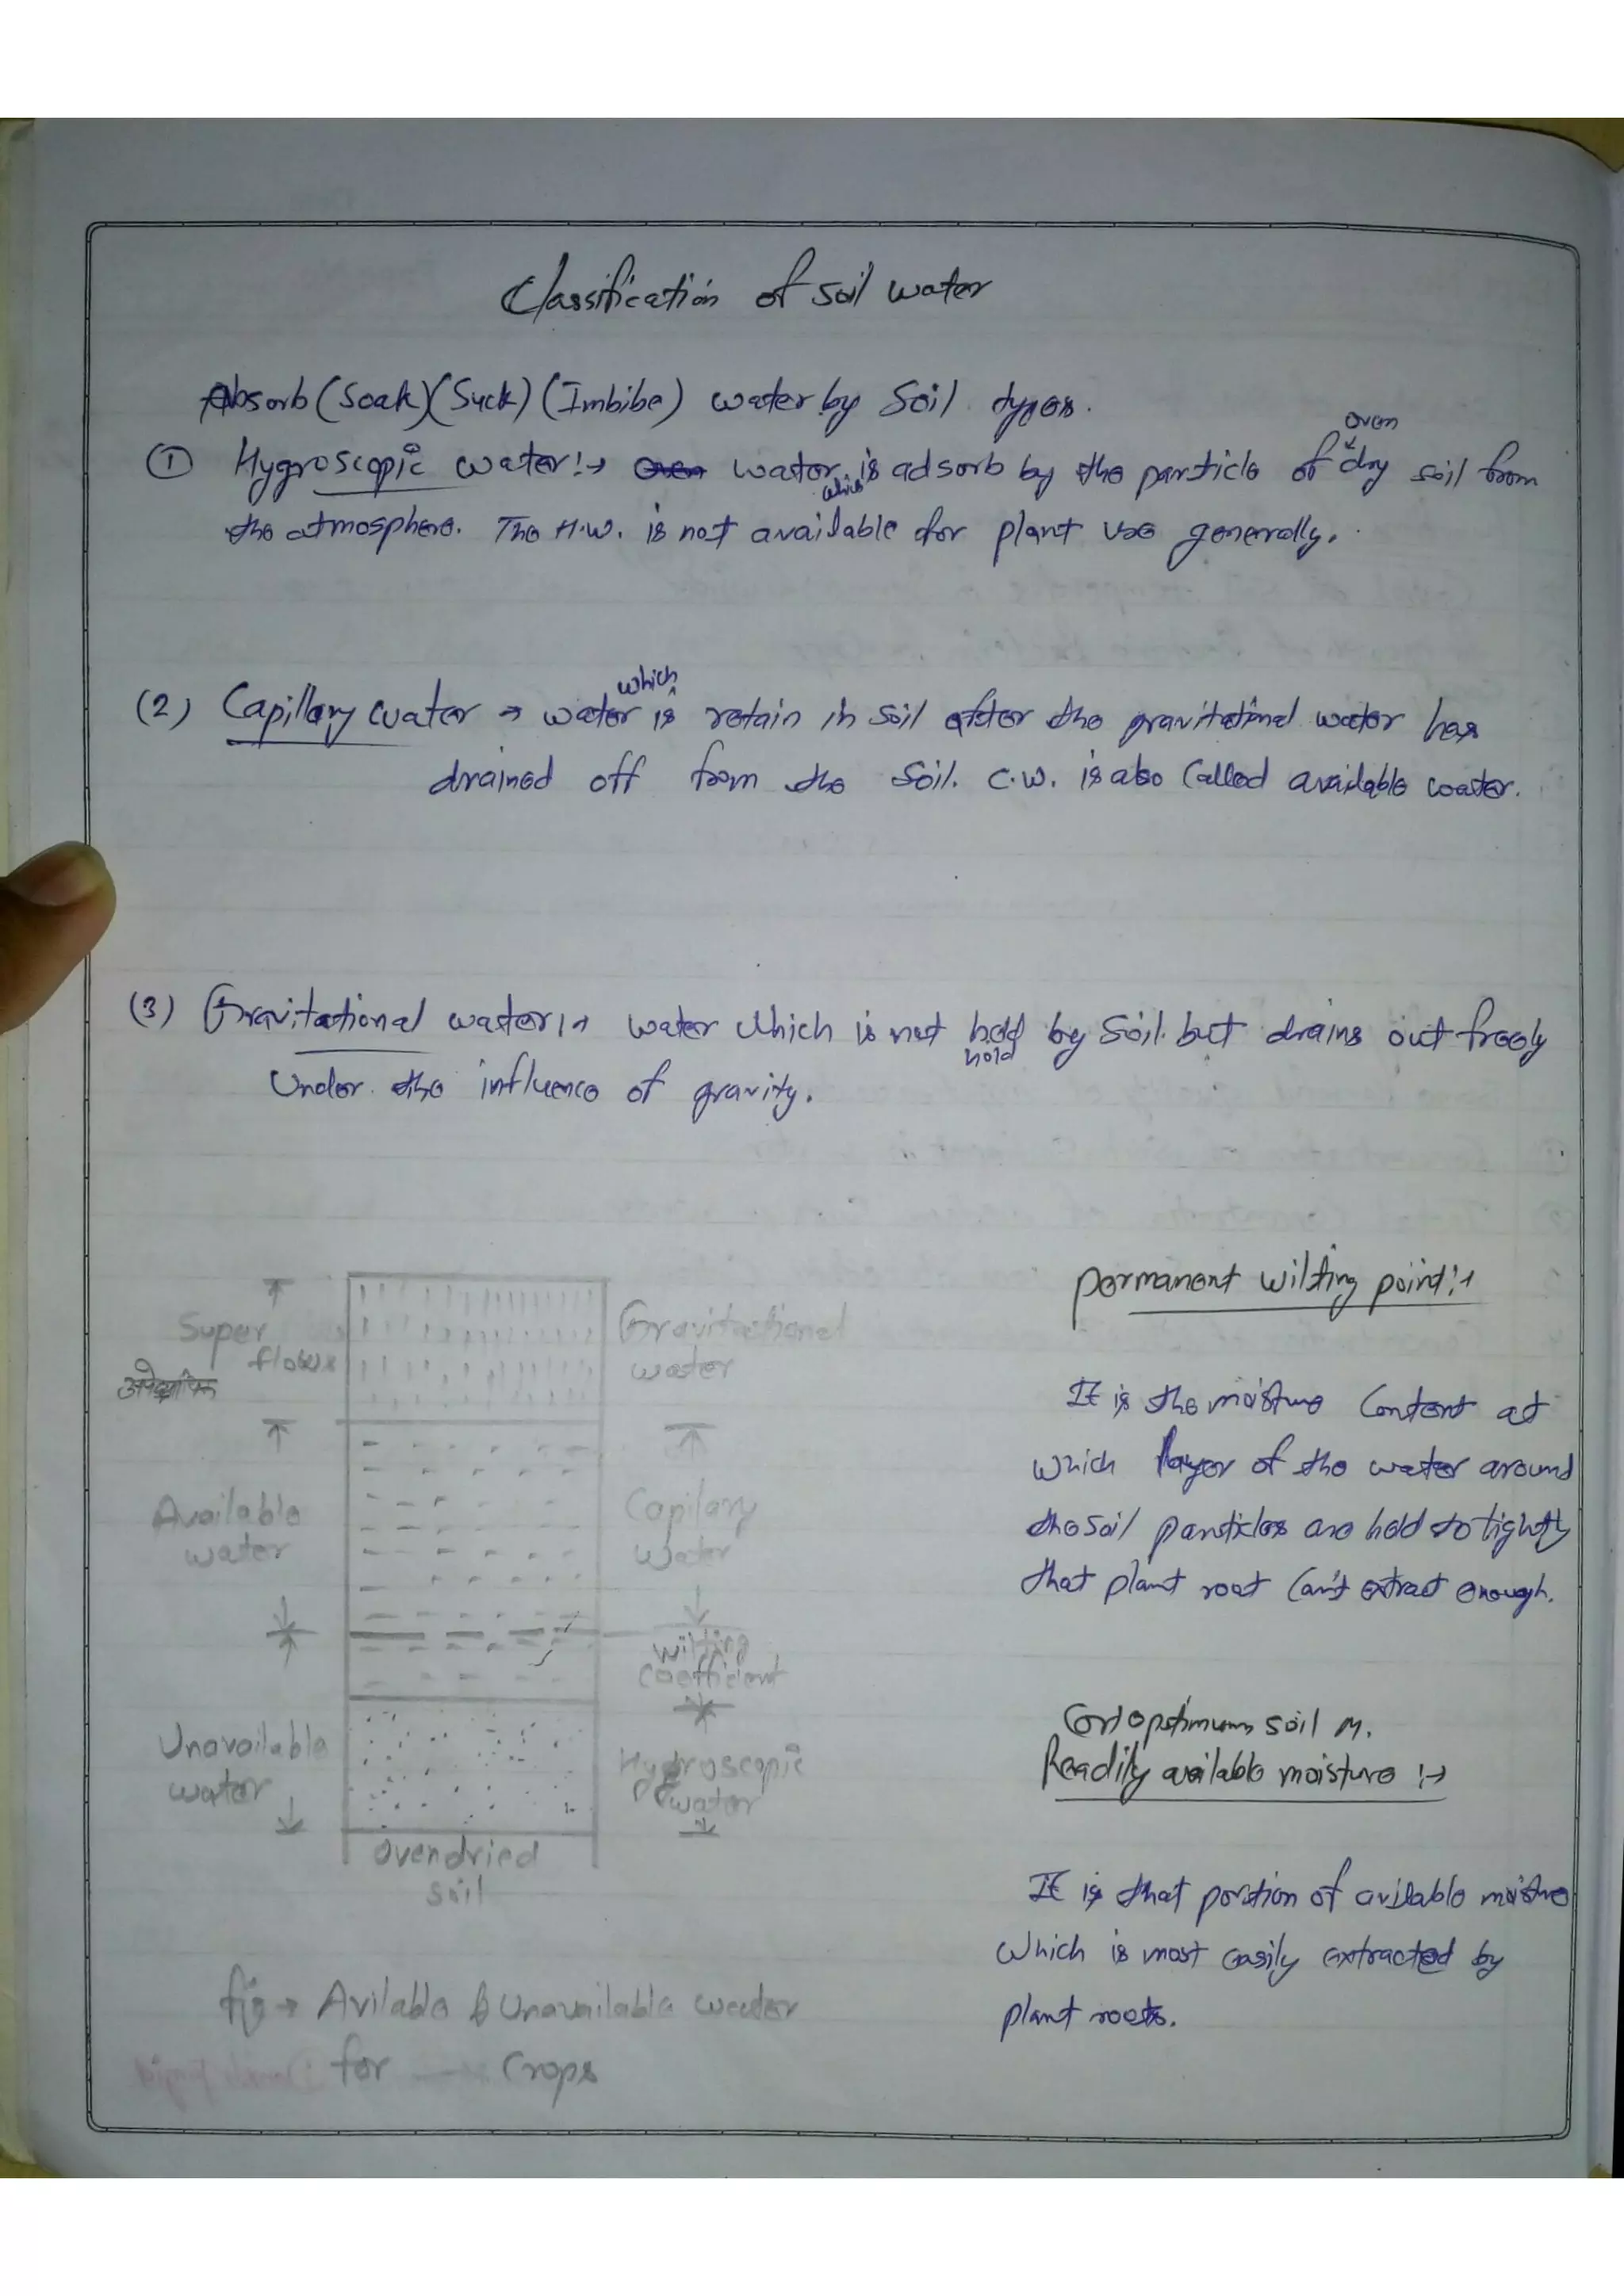 Classification of soil water
Absorb (Soak)(Suck) (Imbibe) water by Soil types.
① Hygroscopic water:→ water which is adsorb by the particle of oven dry soil from
the atmosphere. The H.W. is not available for plant use generally.
(2) Capillary water → water which is retain in soil after the gravitational water has
drained off from the soil. C.W. is also Called available water.
(3) Gravitational water:→ water which is not held by soil but drains out freely
hold
Under the influence of gravity.
Super
flows
Gravitational
water
Available
water
Capilary
water
wilting
Coefficient
Unavailable
water
Hygroscopic
water
Ovendried
soil
fig → Avilable & Unavailable water
for Crops
permanent wilting point:→
It is the moisture Content at
which layer of the water around
the soil particles are held so tightly
that plant root Can't extract enough.
(or) optimum soil M.
Readily available moisture :→
It is that portion of avilable moisture
which is most easily extracted by
plant roots.